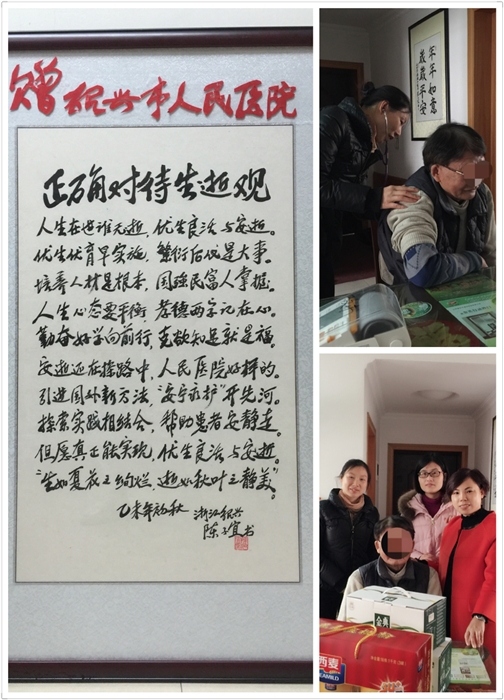 赠绍兴市人民医院
正确对待生逝观
人生在世谁无逝，优生良活与安逝。
优生优育早实施，繁衍后代是大事。
培养人材是根本，国强民富人掌握。
人生心态要平衡，孝德两字记在心。
勤奋好学向前行，克欲知足就是福。
安逝还在摸路中，人民医院好样的。
引进国外新方法，“安宁疗护”开先河。
探索实践相结合，帮助患者安静走。
但愿真正能实现，优生良活与安逝。
“生如夏花之绚烂，逝如秋叶之静美”。
乙未年初秋 浙江绍兴
陈 宜书
年年如意
岁岁平安
金典
西麦
SEAMILD